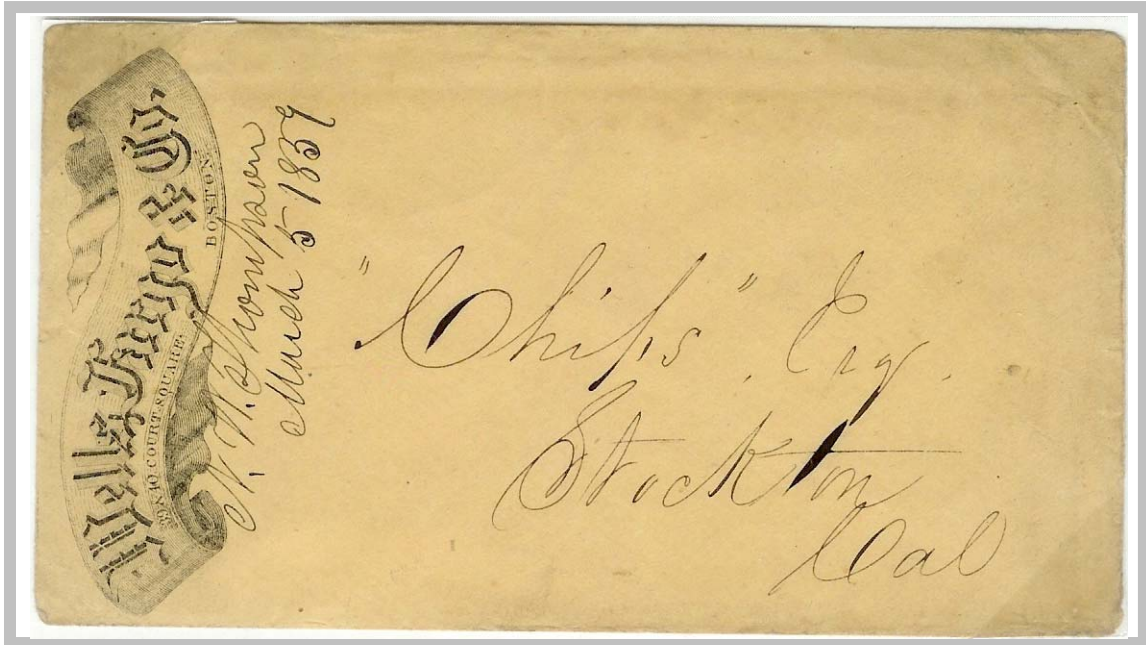 Wells, Fargo & Co
COURT SQUARE.
BOSTON.
N. W. Thompson
March 5 1859
"Chips", Esq.
Stockton
Cal